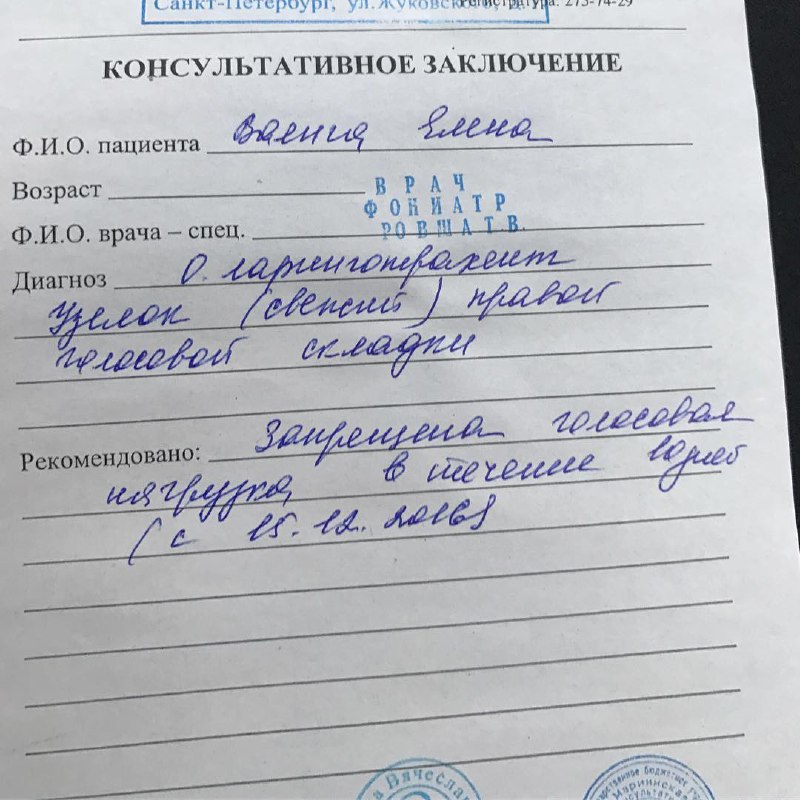 Санкт-Петербург, ул.Жуковск
Регистратура: 273-74-29
КОНСУЛЬТАТИВНОЕ ЗАКЛЮЧЕНИЕ
Ф.И.О. пациента Ваенга Елена
Возраст
ВРАЧ
ФОНИАТР
РОВША Т.В.
Ф.И.О. врача – спец.
Диагноз О. ларинготрахеит
Узелок (свежий) правой
голосовой складки
Рекомендовано: Запрещена голосовая
нагрузка в течение
(с 15.12.2016)
Вячеслав
Мариинская